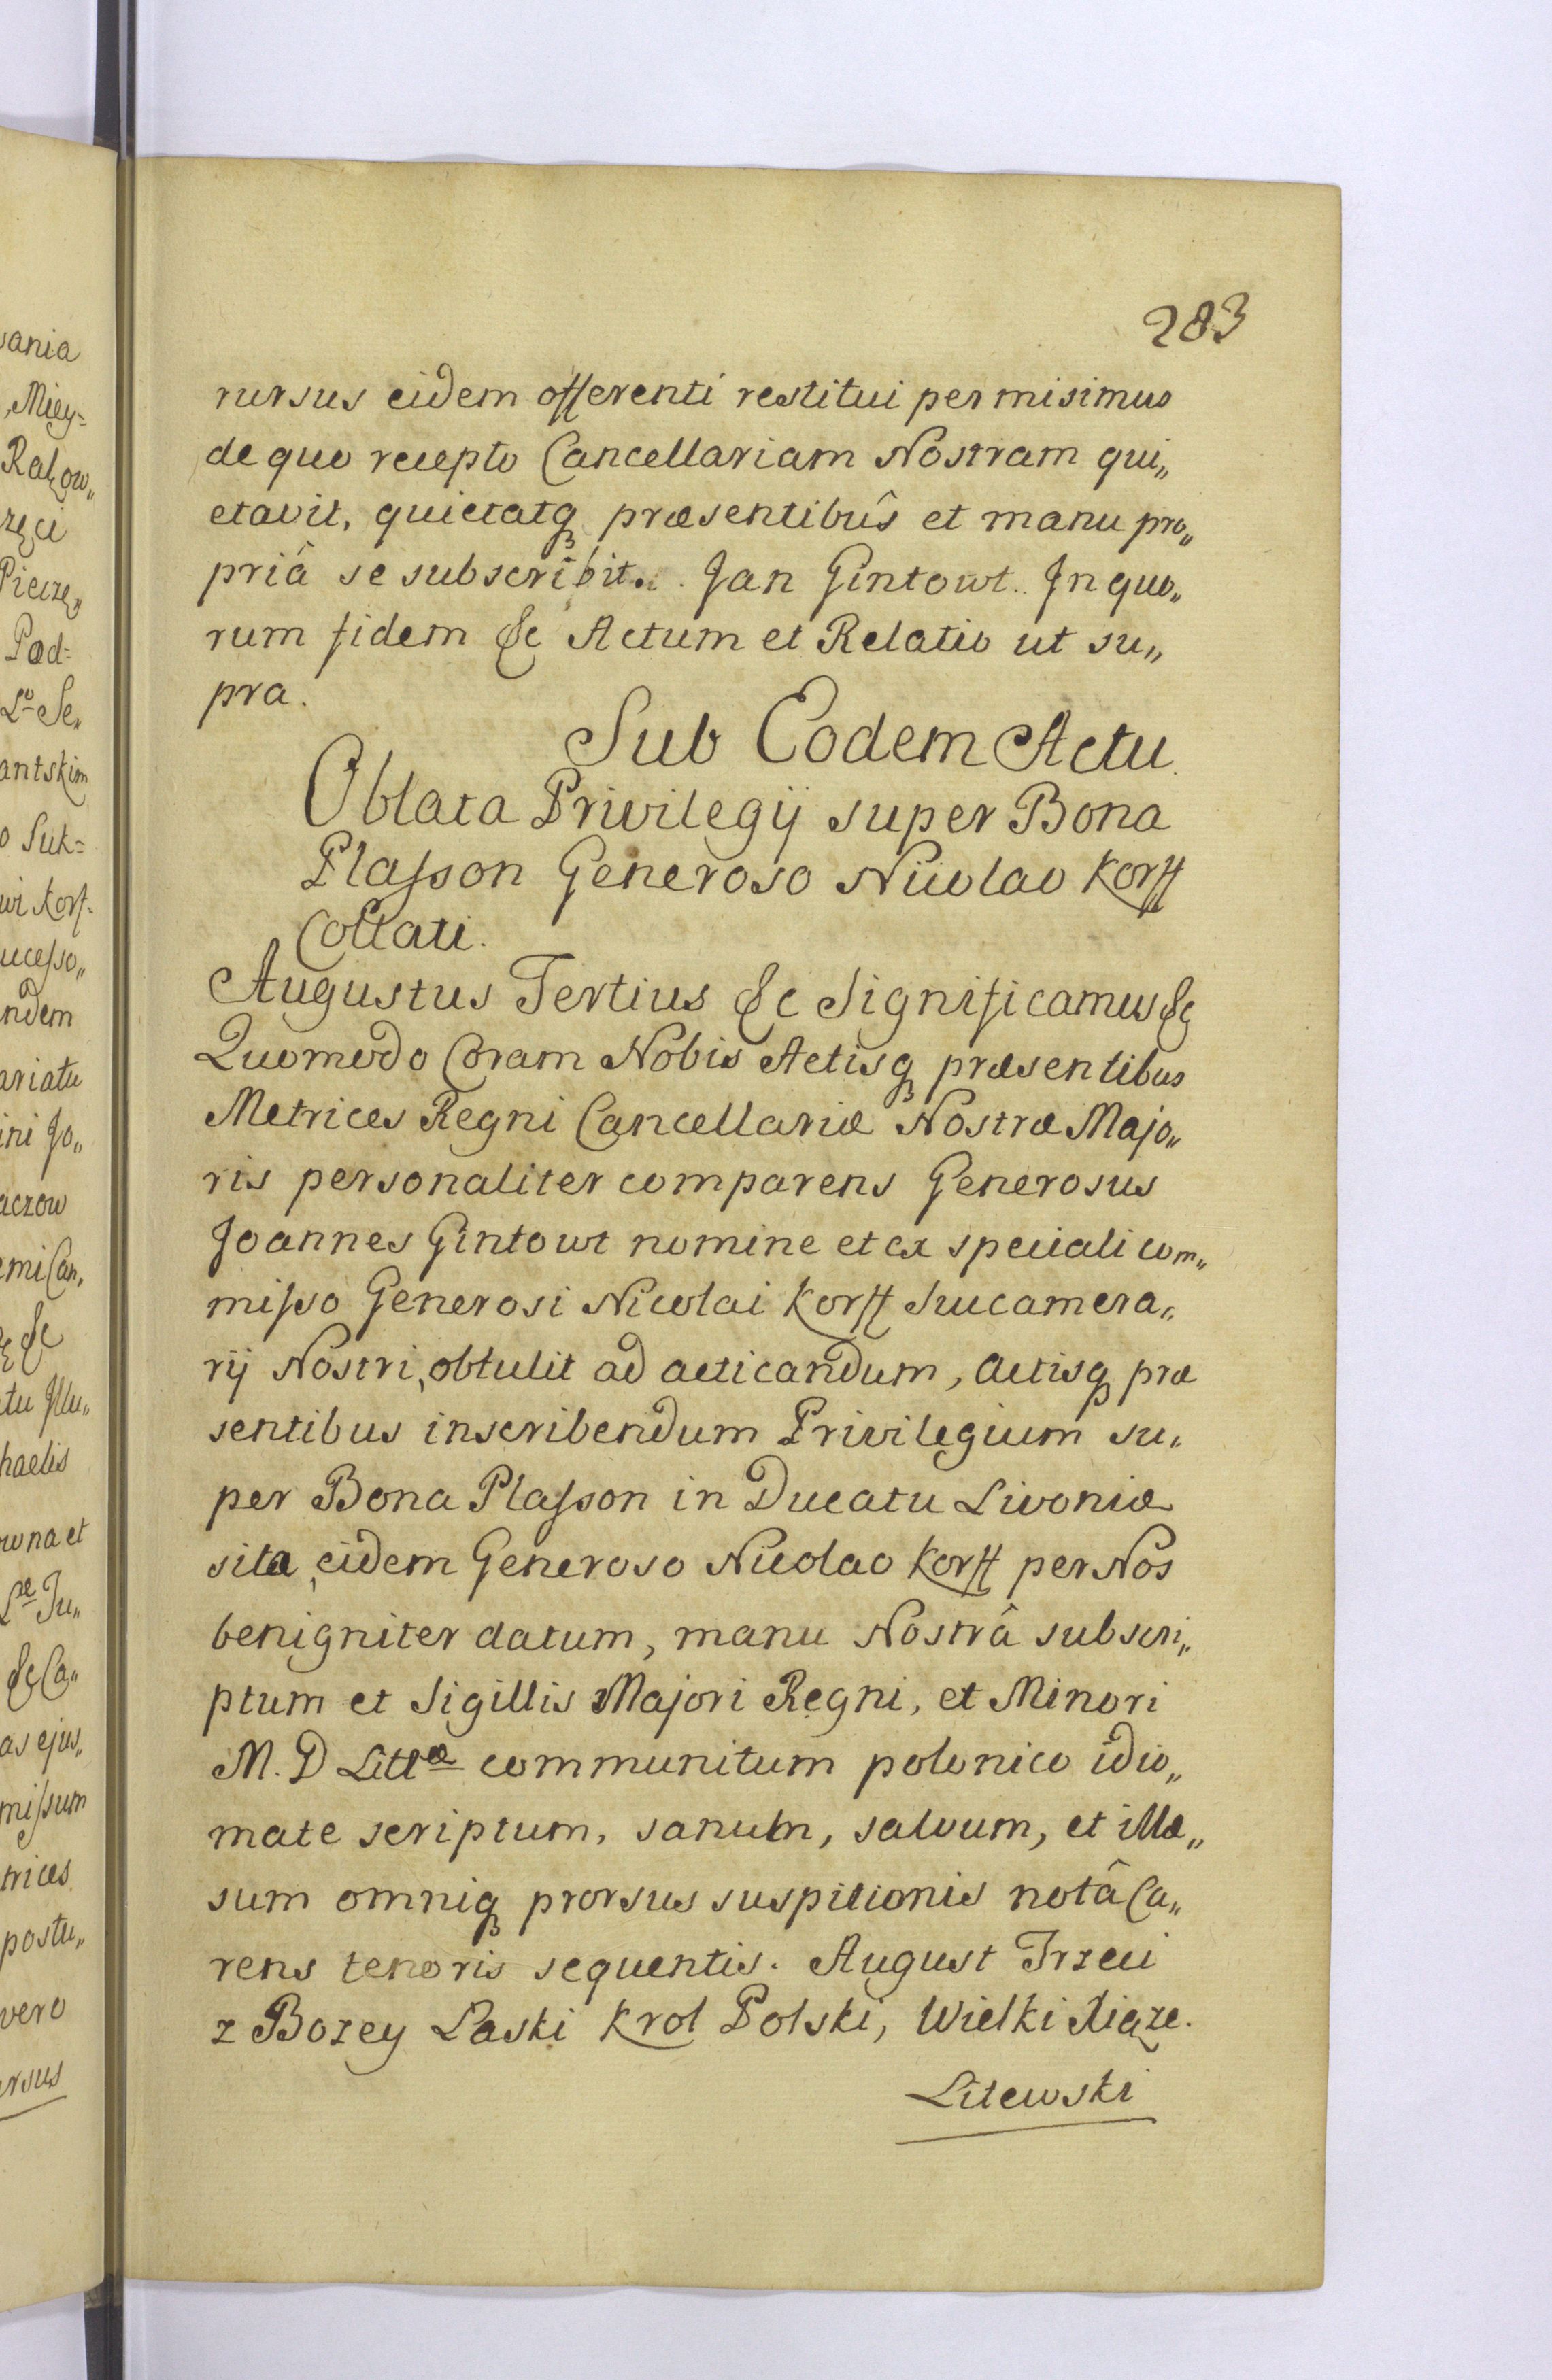 283
rursus eidem offerenti restitui permisimus
de quo recepto Cancellariam Nostram qui„
etavit, quietatq præsentibûs et manu pro„
priâ se subscribit. Jan Gintowt. In quo„
rum fidem &c Actum et Relatio ut su„
pra.
Sub Eodem Actu
Oblata Privilegij super Bona
Plasson Generoso Nicolao Korff
Collati.
Augustus Tertius &c Significamus &c
Quomodo Coram Nobis Actisq præsentibus
Metrices Regni Cancellariæ Nostræ Majo„
ris personaliter comparens Generosus
Joannes Gintowt nomine et ex speciali com„
misso Generosi Nicolai Korff Succamera„
rij Nostri, obtulit ad acticandum, Actisq præ
sentibus inscribendum Privilegium su„
per Bona Plasson in Ducatu Livoniæ
sita, eidem Generoso Nicolao Korff per Nos
benigniter datum, manu Nostrâ subscri„
ptum et Sigillis Majori Regni, et Minori
M. D Littæ communitum polonico idio„
mate scriptum, sanum, salvum, et illæ„
sum omniq prorsus suspitionis notâ Ca„
rens tenoris sequentis. August Trzeci
z Bozey Laski Krol Polski, Wielki Xiąze.
Litewski
vania
Miey=
Rakow„
Pod=
antskim
o Suk=
wi Korf-
ucesso„
ndem
ariatu
ini Jo„
aczow
emi Can„
&c
tu Illu„
haelis
wna et
&c Ca„
as ejus„
missum
trices
postu„
vero
ersus